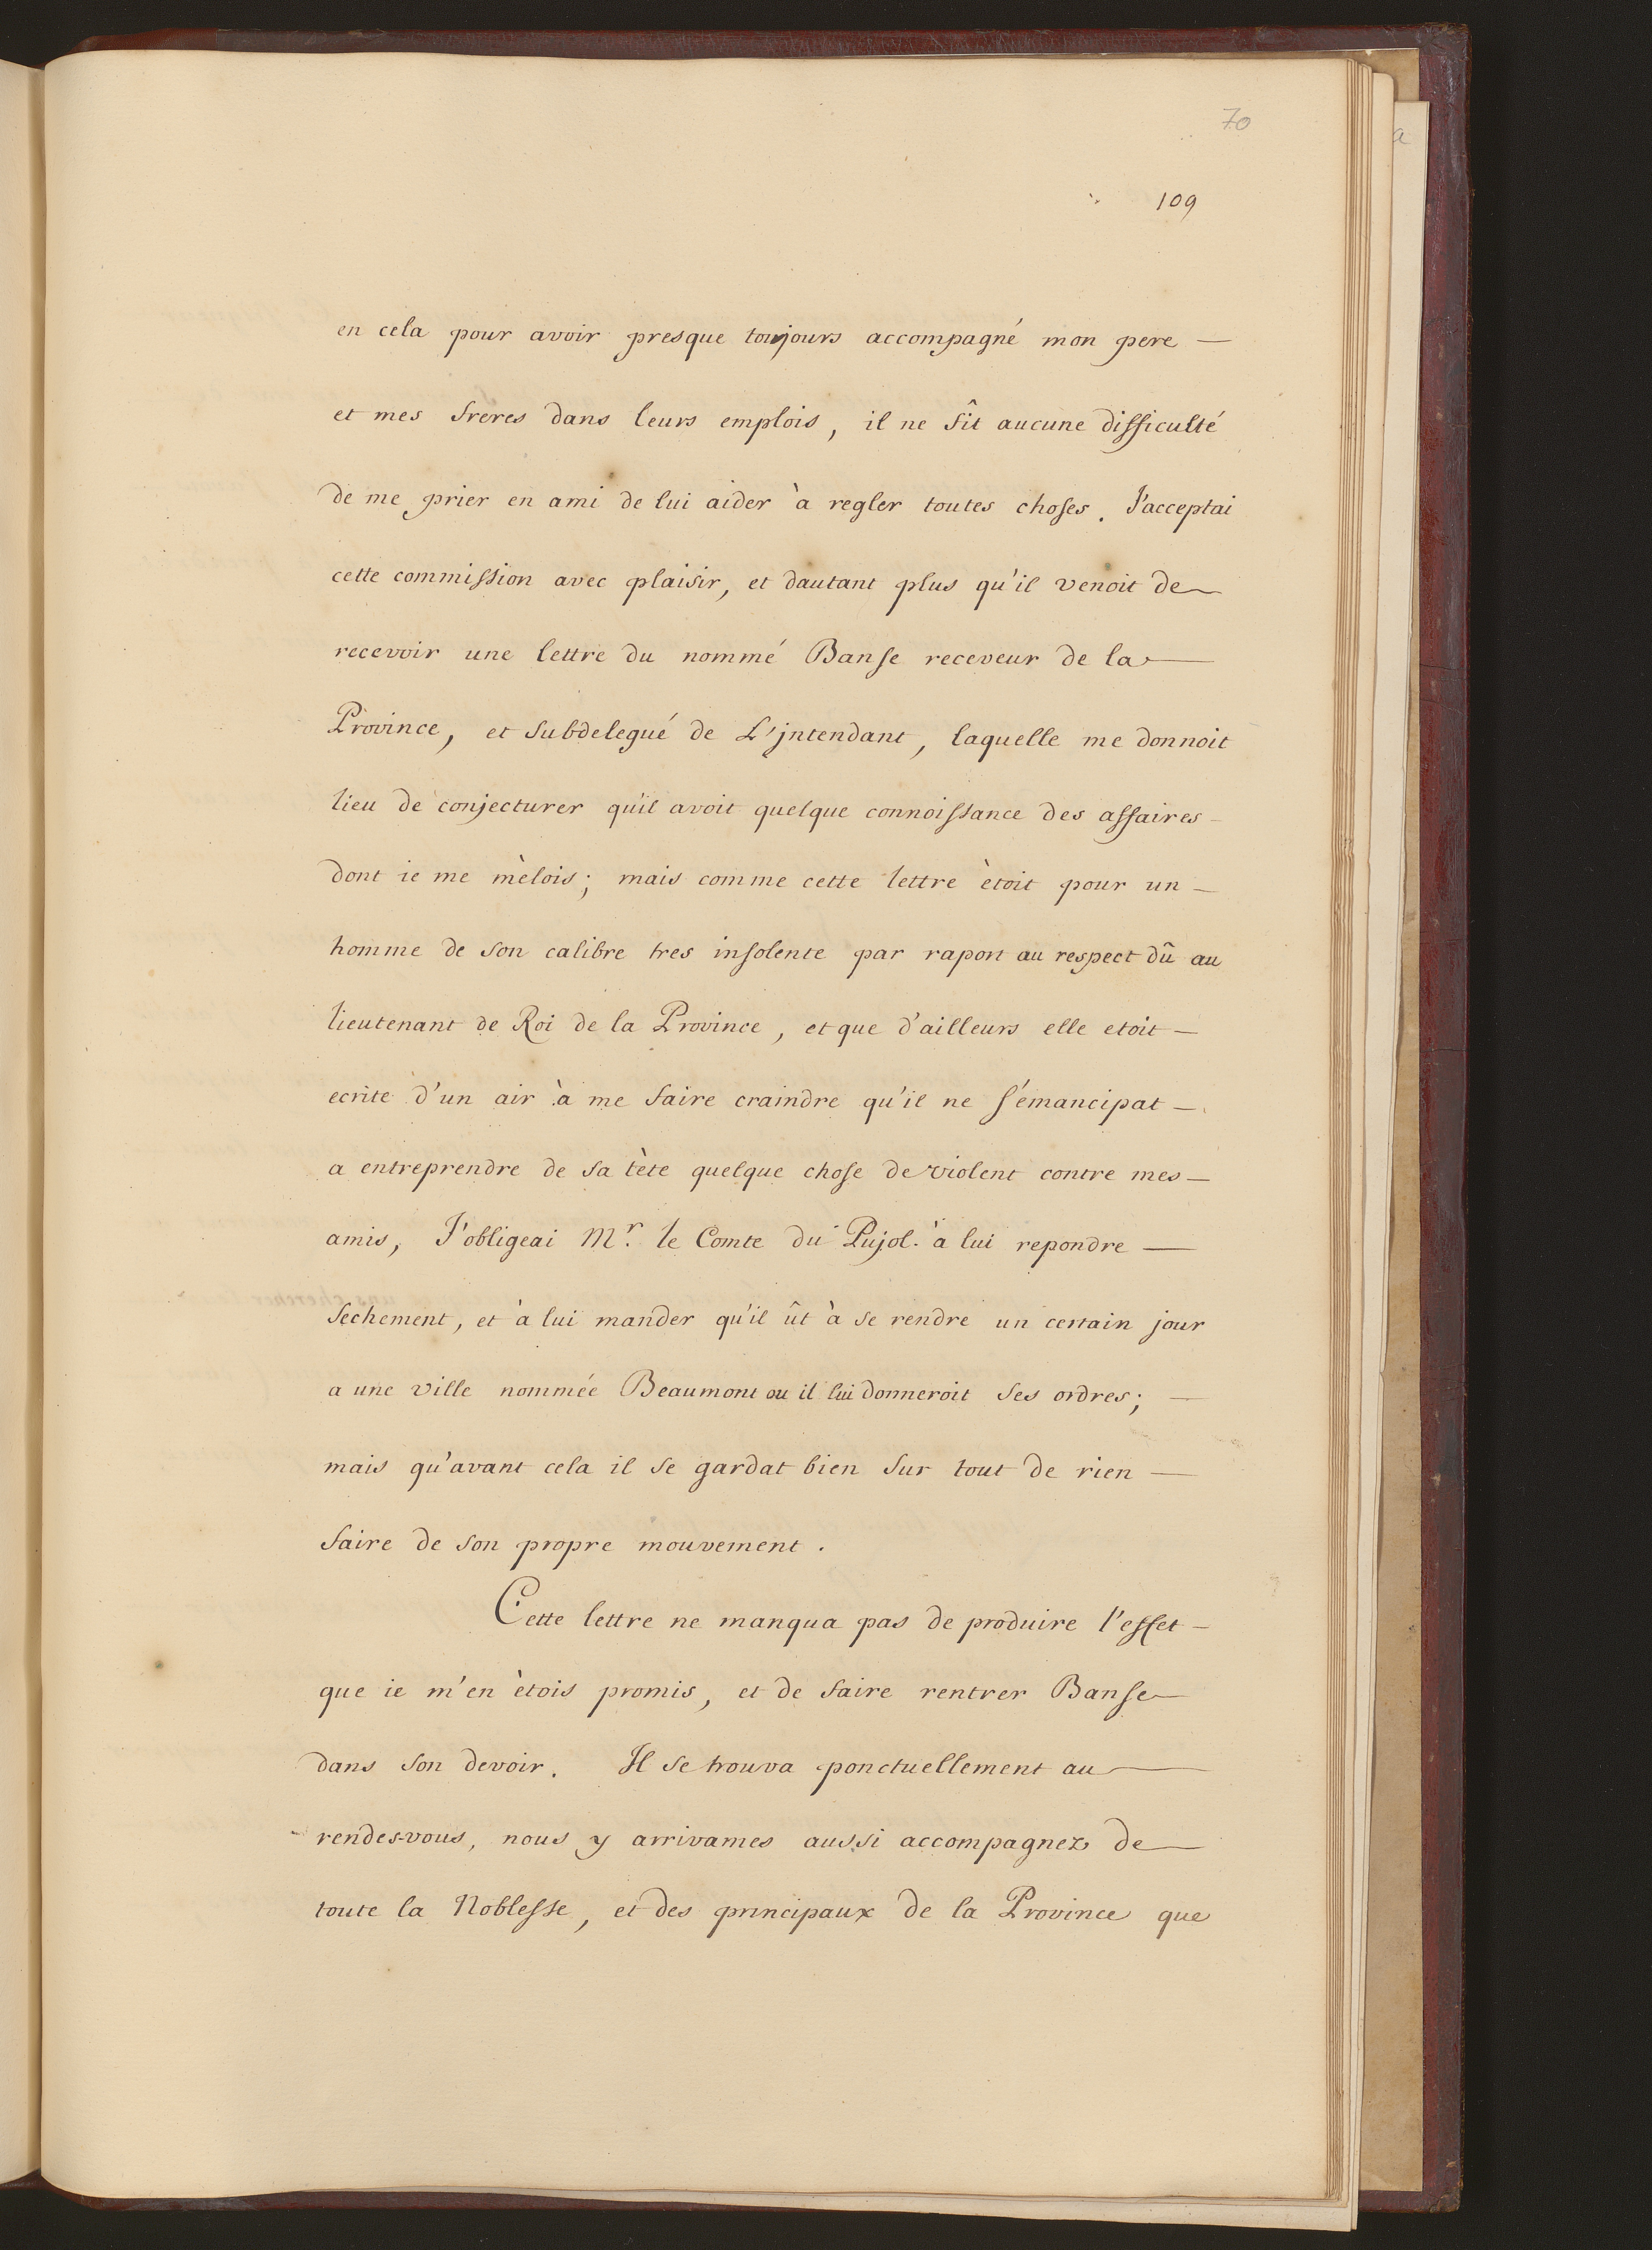 70
109
en cela pour avoir presque toujours accompagné mon pere —
et mes freres dans leurs emplois, il ne fît aucune difficulté
de me prier en ami de lui aider à regler toutes choses. J'acceptai
cette commission avec plaisir, et dautant plus qu'il venoit de
recevoir une lettre du nommé Banse receveur de la —
Province, et subdelegué de L'jntendant, laquelle me donnoit
lieu de conjecturer qu'il avoit quelque connoissance des affaires —
dont ie me mèlois; mais comme cette lettre ètoit pour un —
homme de son calibre tres insolente par raport au respect dû au
lieutenant de Roi de la Province, et que d'ailleurs elle etoit —
ecrite d'un air à me faire craindre qu'il ne s'émancipat —
a entreprendre de sa tète quelque chose de violent contre mes —
amis, J'obligeai Mr. le Comte du Pujol à lui repondre —
sechement, et à lui mander qu'il ût à se rendre un certain jour
a une ville nommée Beaumont ou il lui donneroit ses ordres; —
mais qu'avant cela il se gardat bien sur tout de rien —
faire de son propre mouvement.
Cette lettre ne manqua pas de produire l'effet —
que ie m'en ètois promis, et de faire rentrer Banse
dans son devoir. Il se trouva ponctuellement au —
rendes-vous, nous y arrivames aussi accompagnez de
toute la Noblesse, et des principaux de la Province que